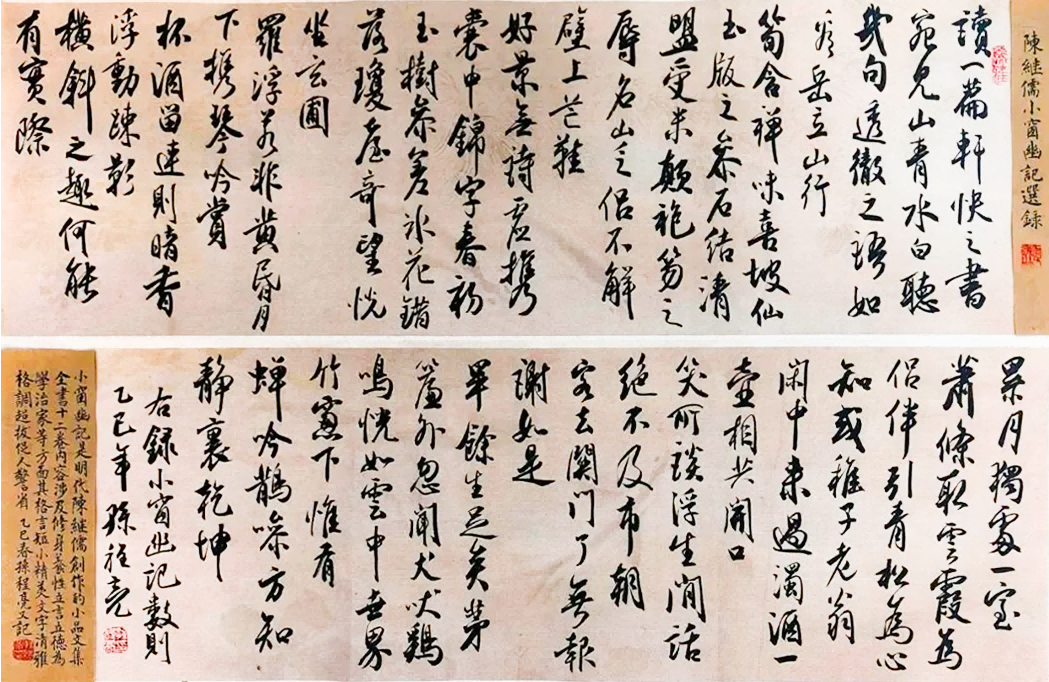 陳继儒小窗幽記選録
讀一篇軒快之書
宛見山青水白聽
幾句透徹之語如
看岳立山行
筍含禅味喜坡仙
玉版之参石结清
盟受米颠袍笏之
辱名山乏侣不解
壁上芒鞋
好景無詩虚携
囊中錦字春初
玉樹参差冰花错
落瓊臺奇望恍
坐玄圃
羅浮若非黄昏月
下携琴吟賞
杯酒留連則暗香
浮動疎影
横斜之趣何能
有實際
累月獨處一室
蕭條取雲霞為
侣伴引青松為心
知或稚子老翁
闲中来過濁酒一
壶相共開口
笑所談浮生閒話
绝不及市朝
客去関門了無報
謝如是
畢餘生足矣茅
簷外忽闻犬吠鷄
鳴恍如雲中世界
竹窓下惟有
蝉吟鹊噪方知
静裏乾坤
右録小窗幽記數則
乙巳年 孫程亮
小窗幽記是明代陳继儒創作的小品文集
全書十二卷内容涉及修身養性立言立德為
學治家等方面其格言短小精美文字清雅
格調超拔促人警省 乙巳春孫程亮又記